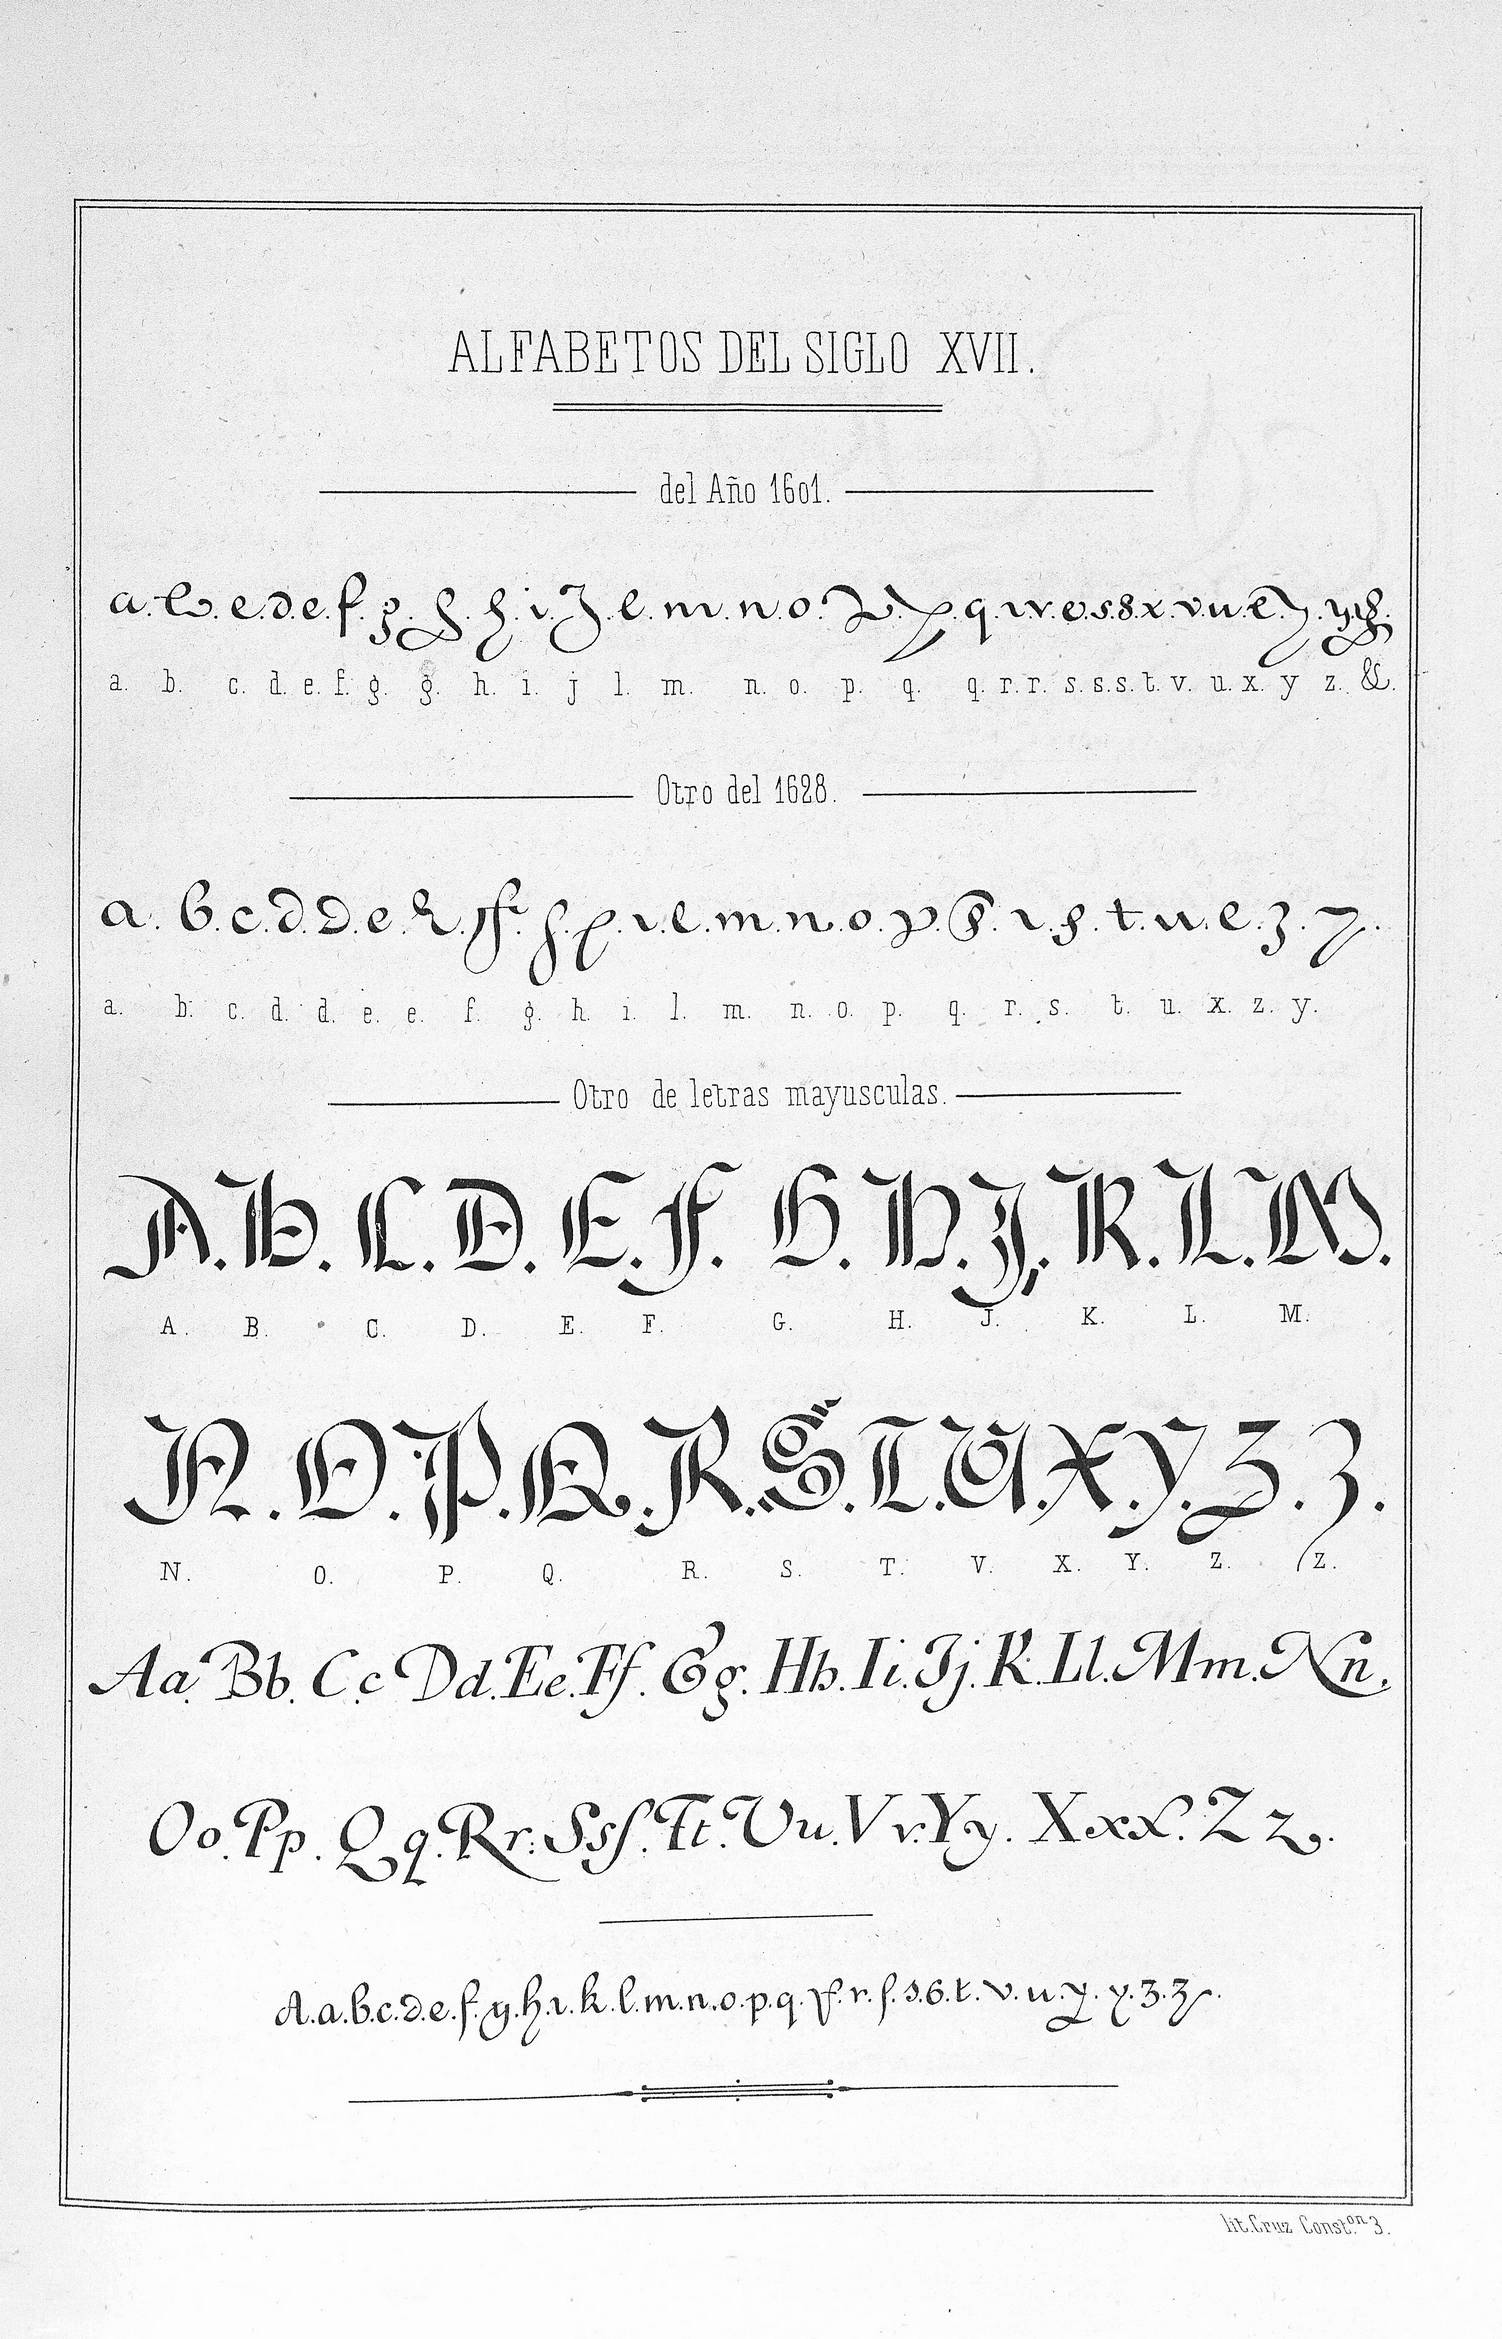 ALFABETOS DEL SIGLO XVII.
del Año 1601.
a. b. c. d. e. f. g. g. h. i. j l. m. n. o. p. q. q. r. r. s. s. s. t. v. u. x. y z. &.
Otro del 1628.
a. b. c. d. d. e. e. f. g. h. i. l. m. n. o. p. q. r. s. t. u. x. z. y.
Otro de letras mayusculas.
A. B. C. D. E. F. G. H. J. K. L. M.
A. B. C. D. E. F. G. H. J. K. L. M.
N. O. P. Q. R. S. T. V. X. Y. Z. Z.
N. O. P. Q. R. S. T. V. X. Y. Z. Z.
Aa. Bb. Cc Dd. Ee. Ff. Gg. Hh. Ii. Jj. K. Ll. Mm. Nn.
Oo. Pp. Qq. Rr. Ssſ. Tt. Uu. Vv. Yy. Xxx. Zz.
A. a. b. c. d. e. f. g. h. i. k. l. m. n. o. p. q. r. ſ. s. t. v. u. y. z.
lit. Cruz Const.ᵒⁿ 3.